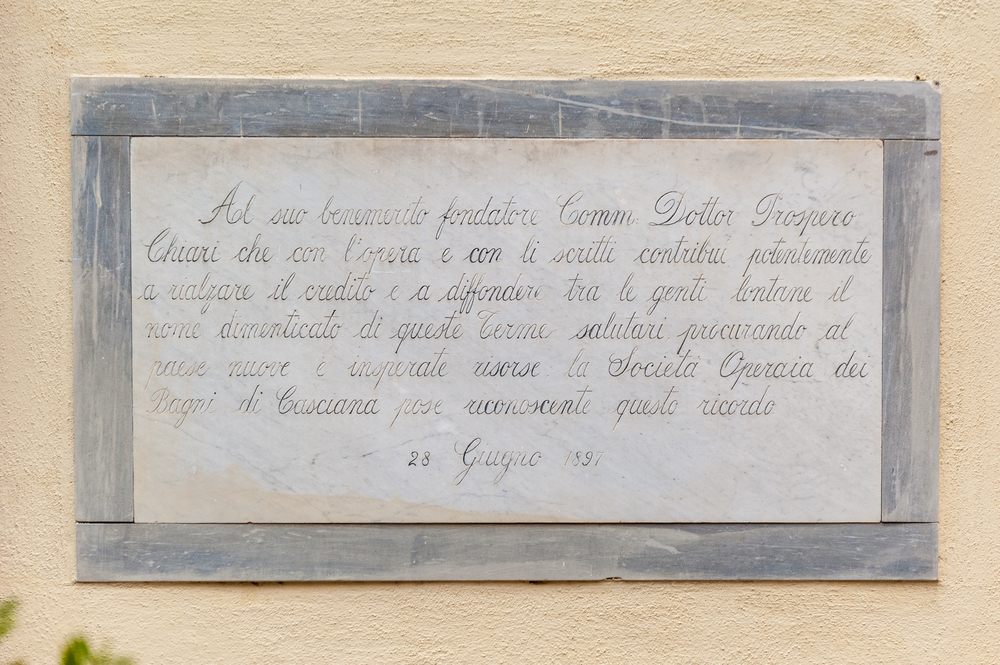 Al suo benemerito fondatore Comm. Dottor Prospero
Chiari che con l'opera e con li scritti contribuì potentemente
a rialzare il credito e a diffondere tra le genti lontane il
nome dimenticato di queste Terme salutari procurando al
paese nuove e insperate risorse la Società Operaia dei
Bagni di Casciana pose riconoscente questo ricordo
28 Giugno 1897